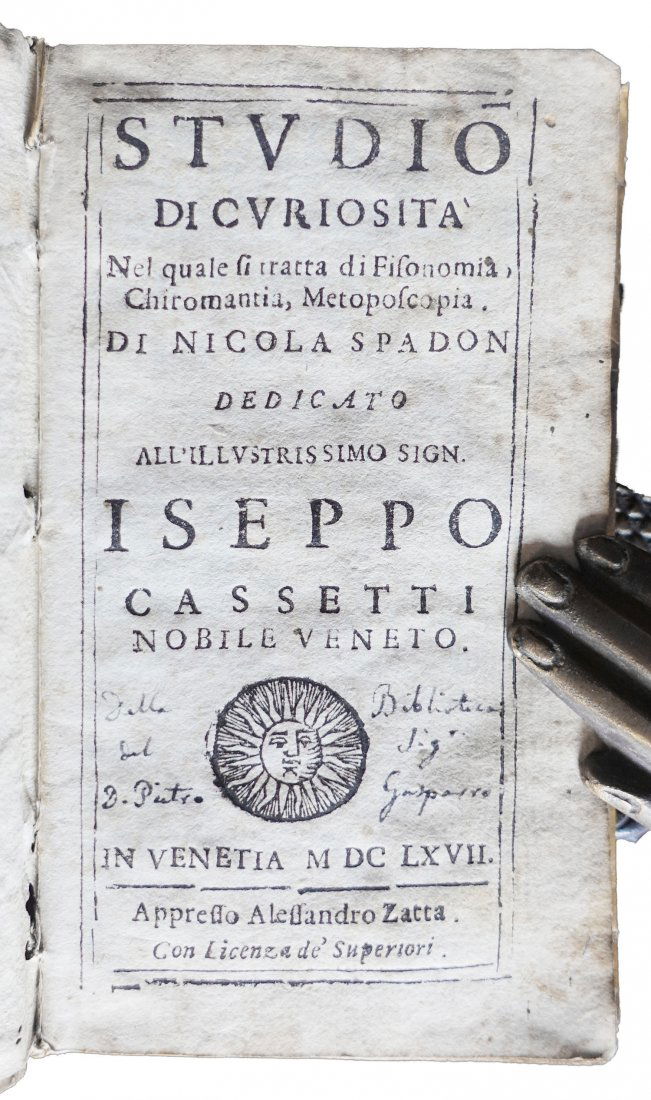 STVDIO
DI CVRIOSITA'
Nel quale ſi tratta di Fiſonomia,
Chiromantia, Metopoſcopia.
DI NICOLA SPADON
DEDICATO
ALL'ILLVSTRISSIMO SIGN.
ISEPPO
CASSETTI
NOBILE VENETO.
Della Biblioteca
del Sigr
D. Pietro Gasparro
IN VENETIA M DC LXVII.
Appreſſo Aleſſandro Zatta.
Con Licenza de' Superiori.